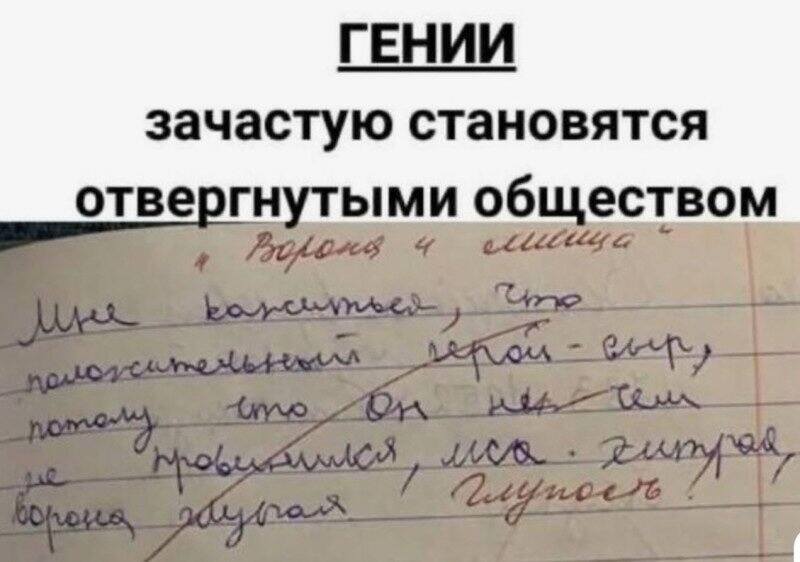 ГЕНИИ
зачастую становятся
отвергнутыми обществом
"Ворона и лисица"
Мне кажиться, что
положительный герой - сыр,
потому что он не чем
не провинился, лиса - хитрая,
ворона глупая Глупость!